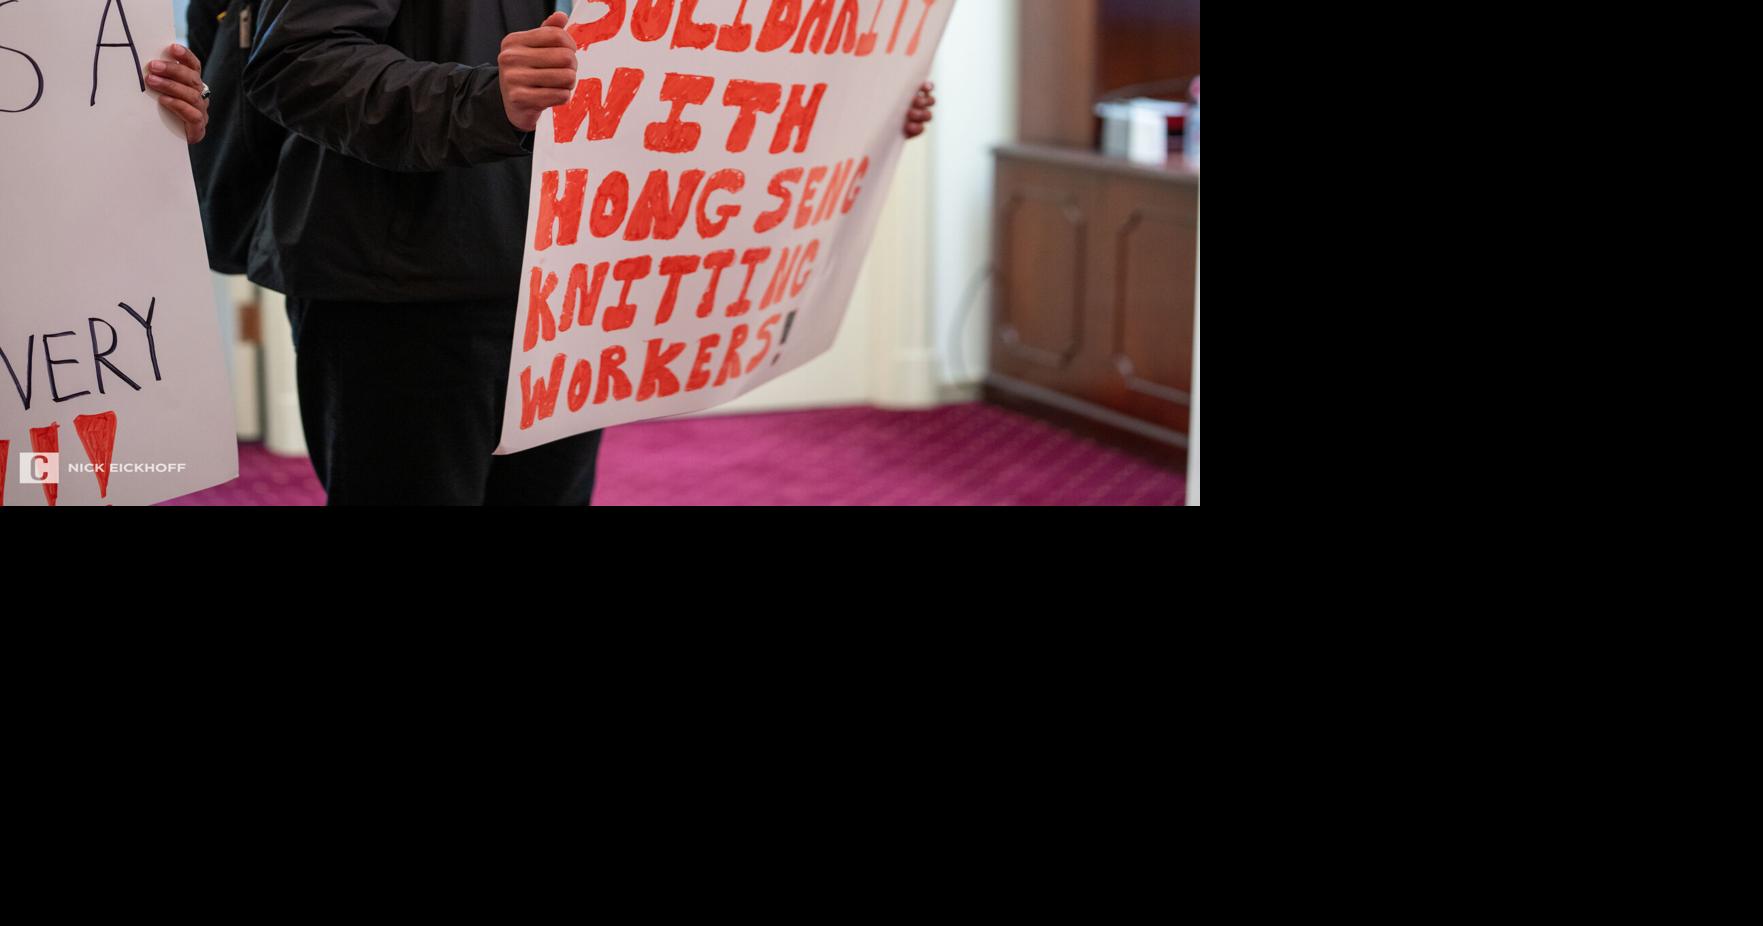 S A
VERY
!!!
SOLIDARITY
WITH
HONG SENG
KNITTING
WORKERS!
C NICK EICKHOFF